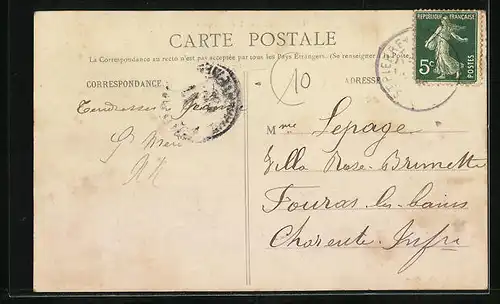 CARTE POSTALE
La Correspondance au recto n'est pas acceptée par tous les Pays Étrangers. (Se renseigner à la Poste
CORRESPONDANCE
ADRESSE
RÉPUBLIQUE FRANÇAISE
5c
POSTES
10
Tendresses
Mme Lepage
Villa Rose-Brunette
Fouras-les-bains
Charente Infre